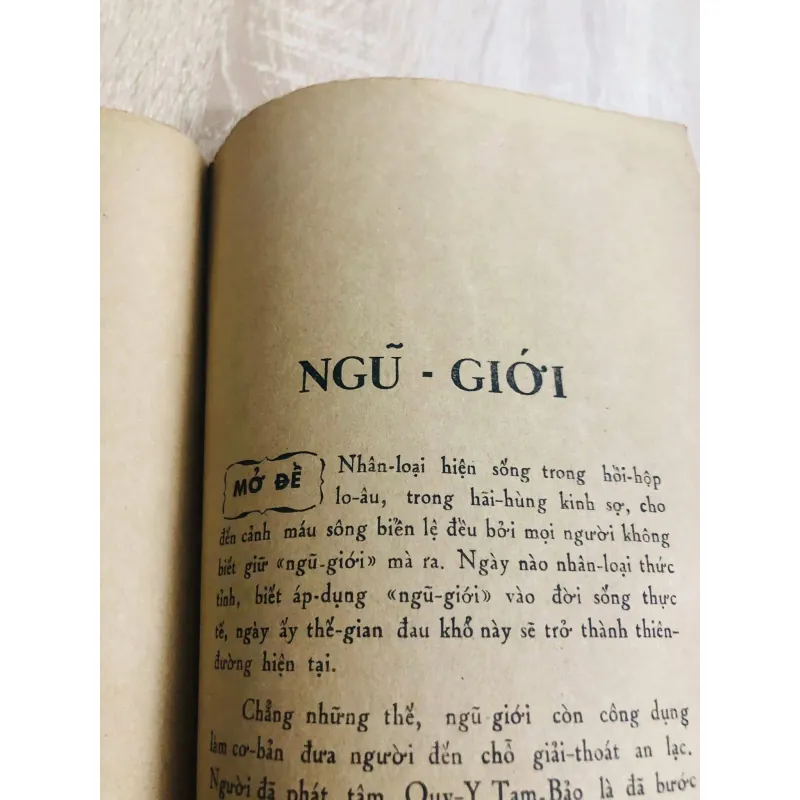 NGŨ - GIỚI
MỞ ĐỀ
Nhân-loại hiện sống trong hồi-hộp
lo-âu, trong hãi-hùng kinh sợ, cho
đến cảnh máu sông biển lệ đều bởi mọi người không
biết giữ «ngũ-giới» mà ra. Ngày nào nhân-loại thức
tỉnh, biết áp-dụng «ngũ-giới» vào đời sống thực
tế, ngày ấy thế-gian đau khổ này sẽ trở thành thiên-
đường hiện tại.
Chẳng những thế, ngũ giới còn công dụng
làm cơ-bản đưa người đến chỗ giải-thoát an lạc.
Người đã phát tâm Quy-Y Tam-Bảo là đã bước